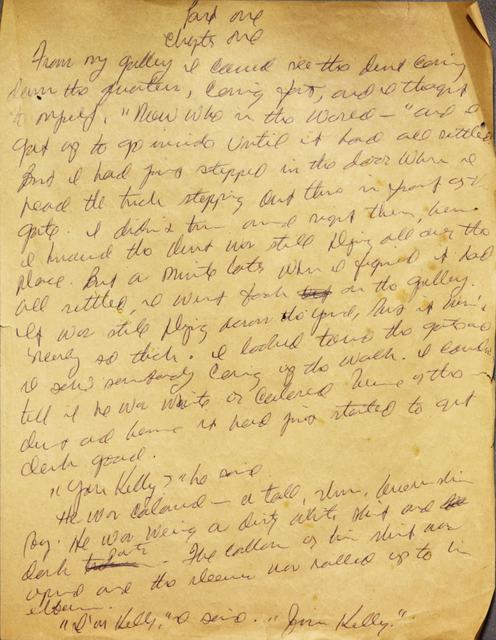 Part one
Chapter one
From my gallery I could see the dust coming
down the quarters, coming fast, and I thought
to myself, "Now who in the world—" and I
got up to go inside until it had all settled.
But I had just stepped in the door when I
head the truck stopping out there in front of the
gate. I didn't turn around right then, because
I knowed the dust was still flying all over the
place. But a minute later when I figured it had
all settled, I went back on the gallery.
It was still flying across the yard, but it wasn't
nearly so thick. I looked toward the gate and
I seen somebody coming up the walk. I couldn't
tell if he was white or colored because of the
dust and because it had just started to get
dark good.
"Jim Kelly?" he said
He was colored— a tall, slim, brown skin
boy. He was wearing a dirty white shirt and
dark pants. The collar of his shirt was
opened and the sleeves was rolled up to his
elbows.
"I'm Kelly," I said. "Jim Kelly."